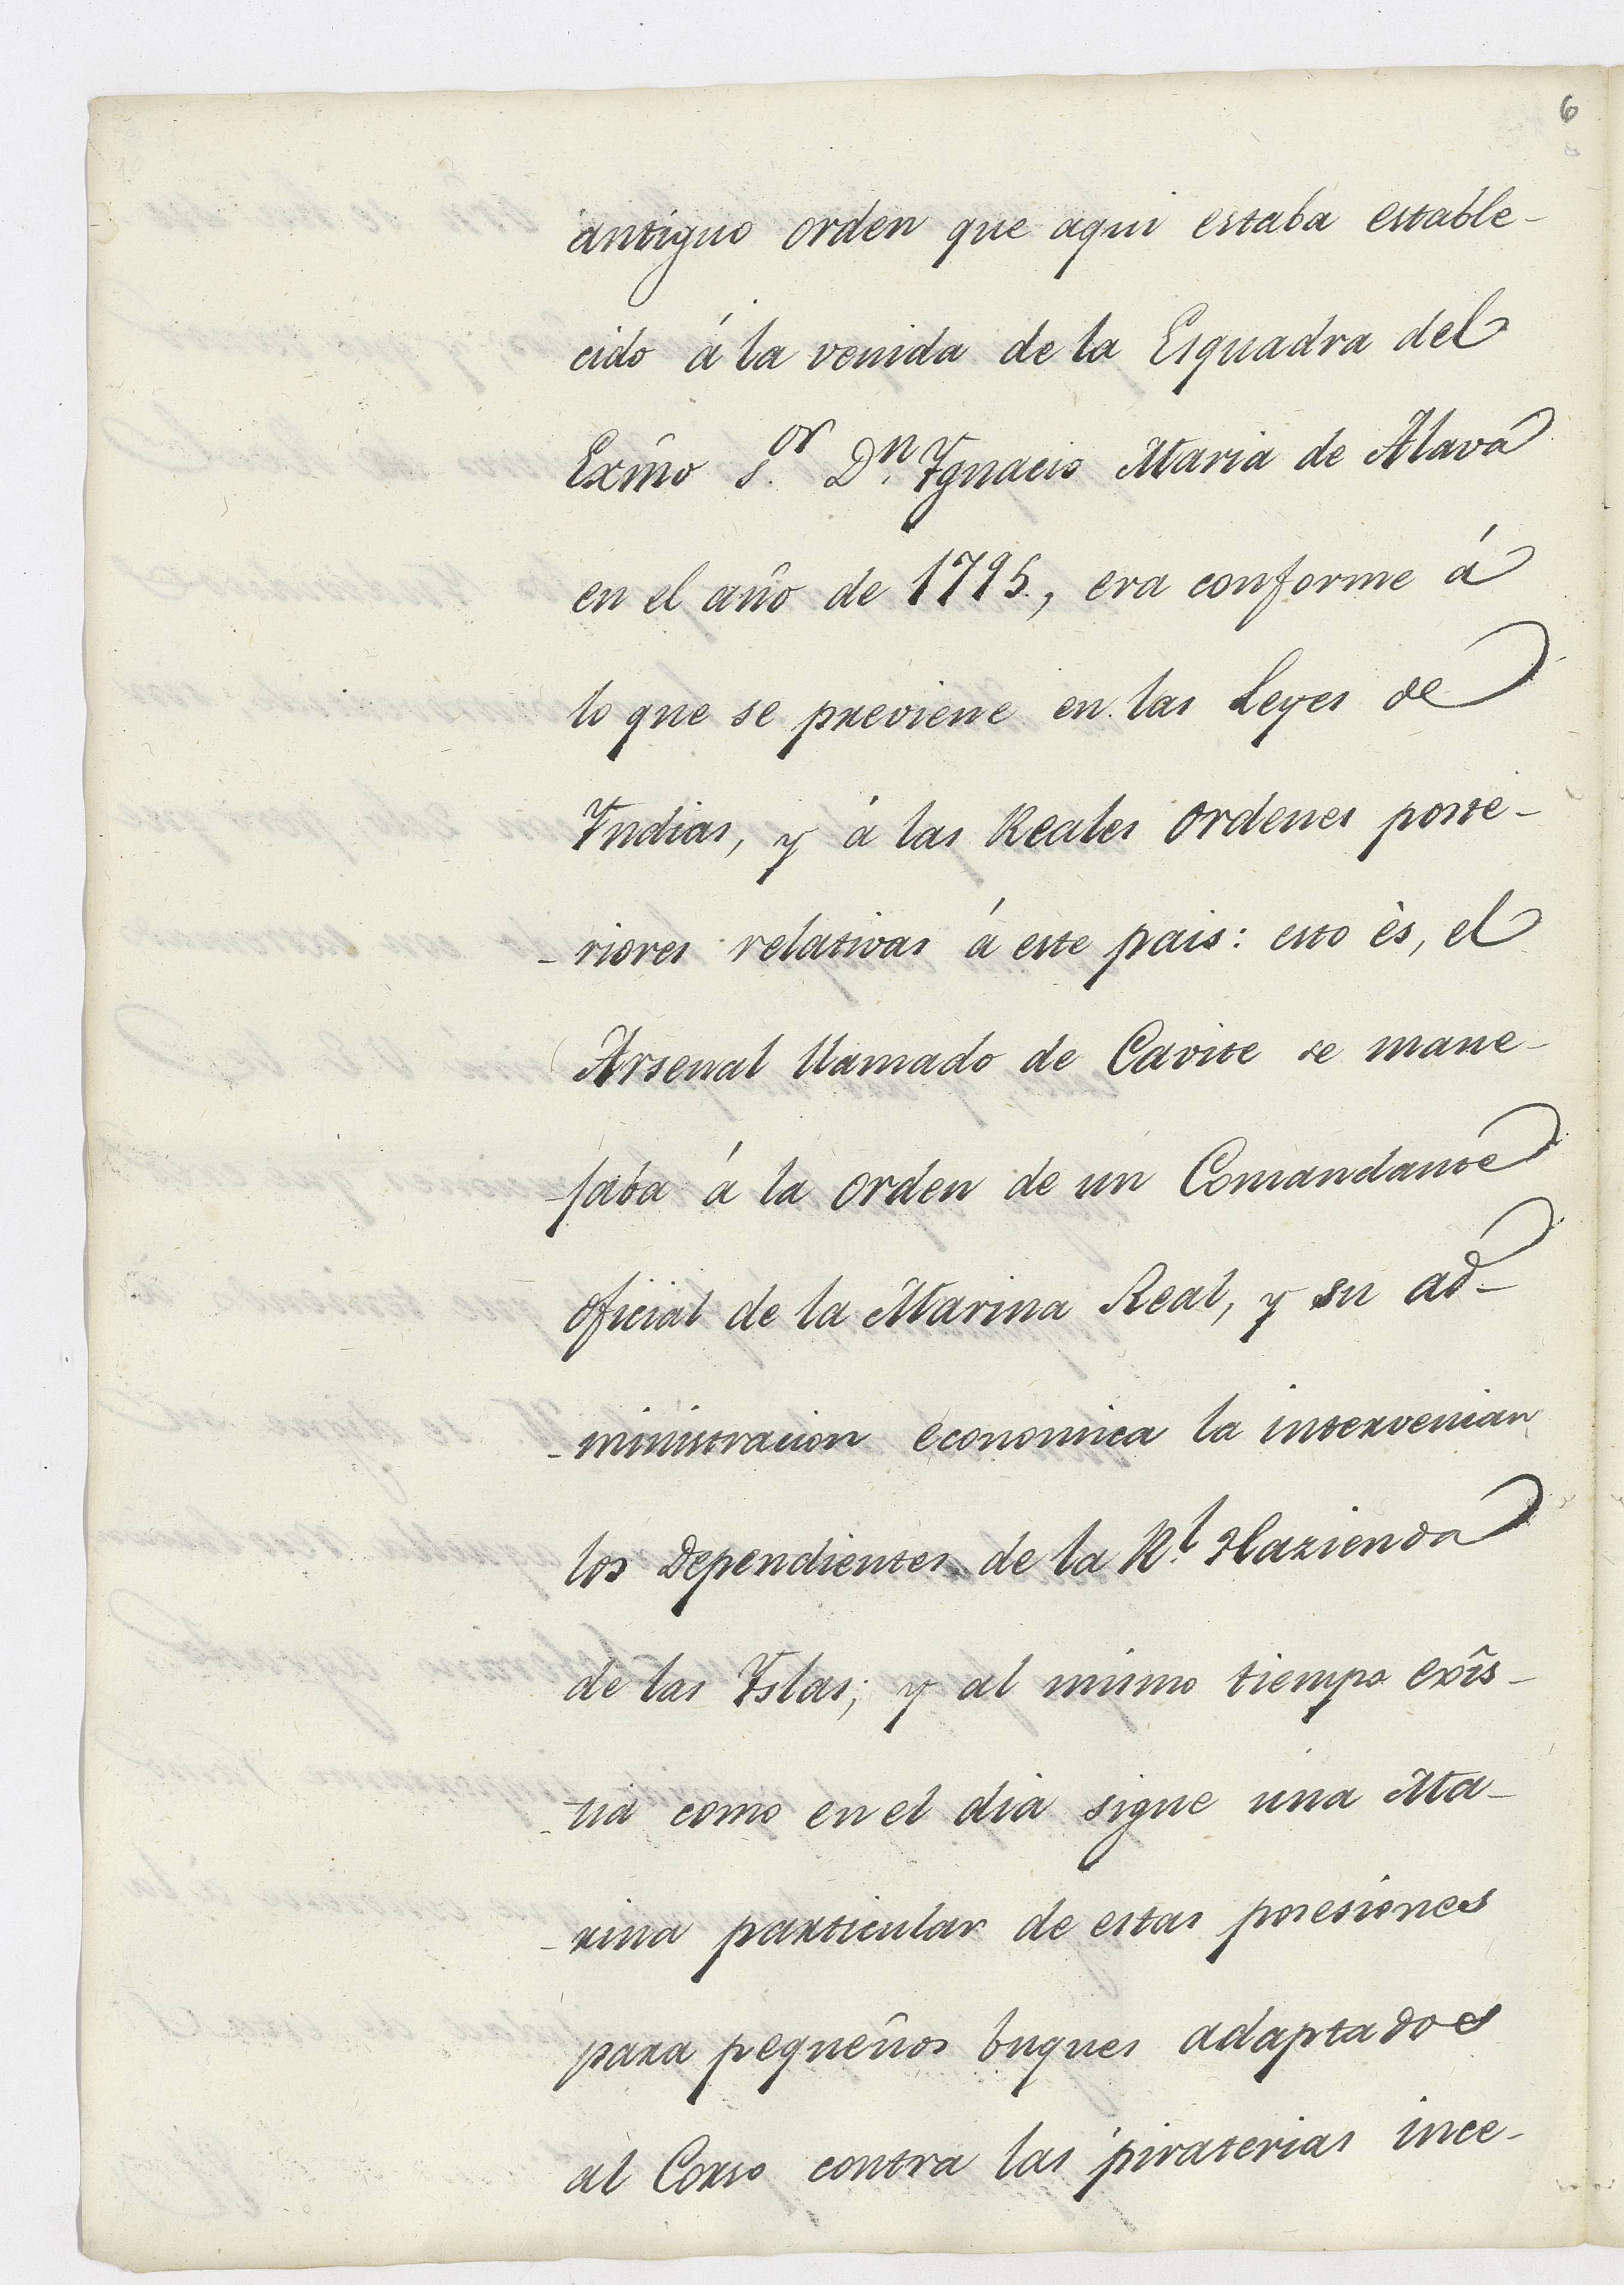 6
antiguo orden que aqui estaba estable-
cido á la venida de la Esquadra del
Exm̃o S.or D.n Ygnacio Maria de Alava
en el año de 1795., era conforme á
lo que se previene en las Leyes de
Yndias, y á las Reales ordenes poste-
-riores relativas á este pais: esto ès, el
Arsenal llamado de Cavite se mane-
-jaba á la orden de un Comandante
oficial de la Marina Real, y su ad-
-ministracion economica la intervenian
los Dependientes de la R.l Hazienda
de las Yslas; y al mismo tiempo exîs-
-tia como en el dia sigue una Ma-
-rina particular de estas posesiones
para pequeños buques adaptados
al Corso contra las piraterias ince-